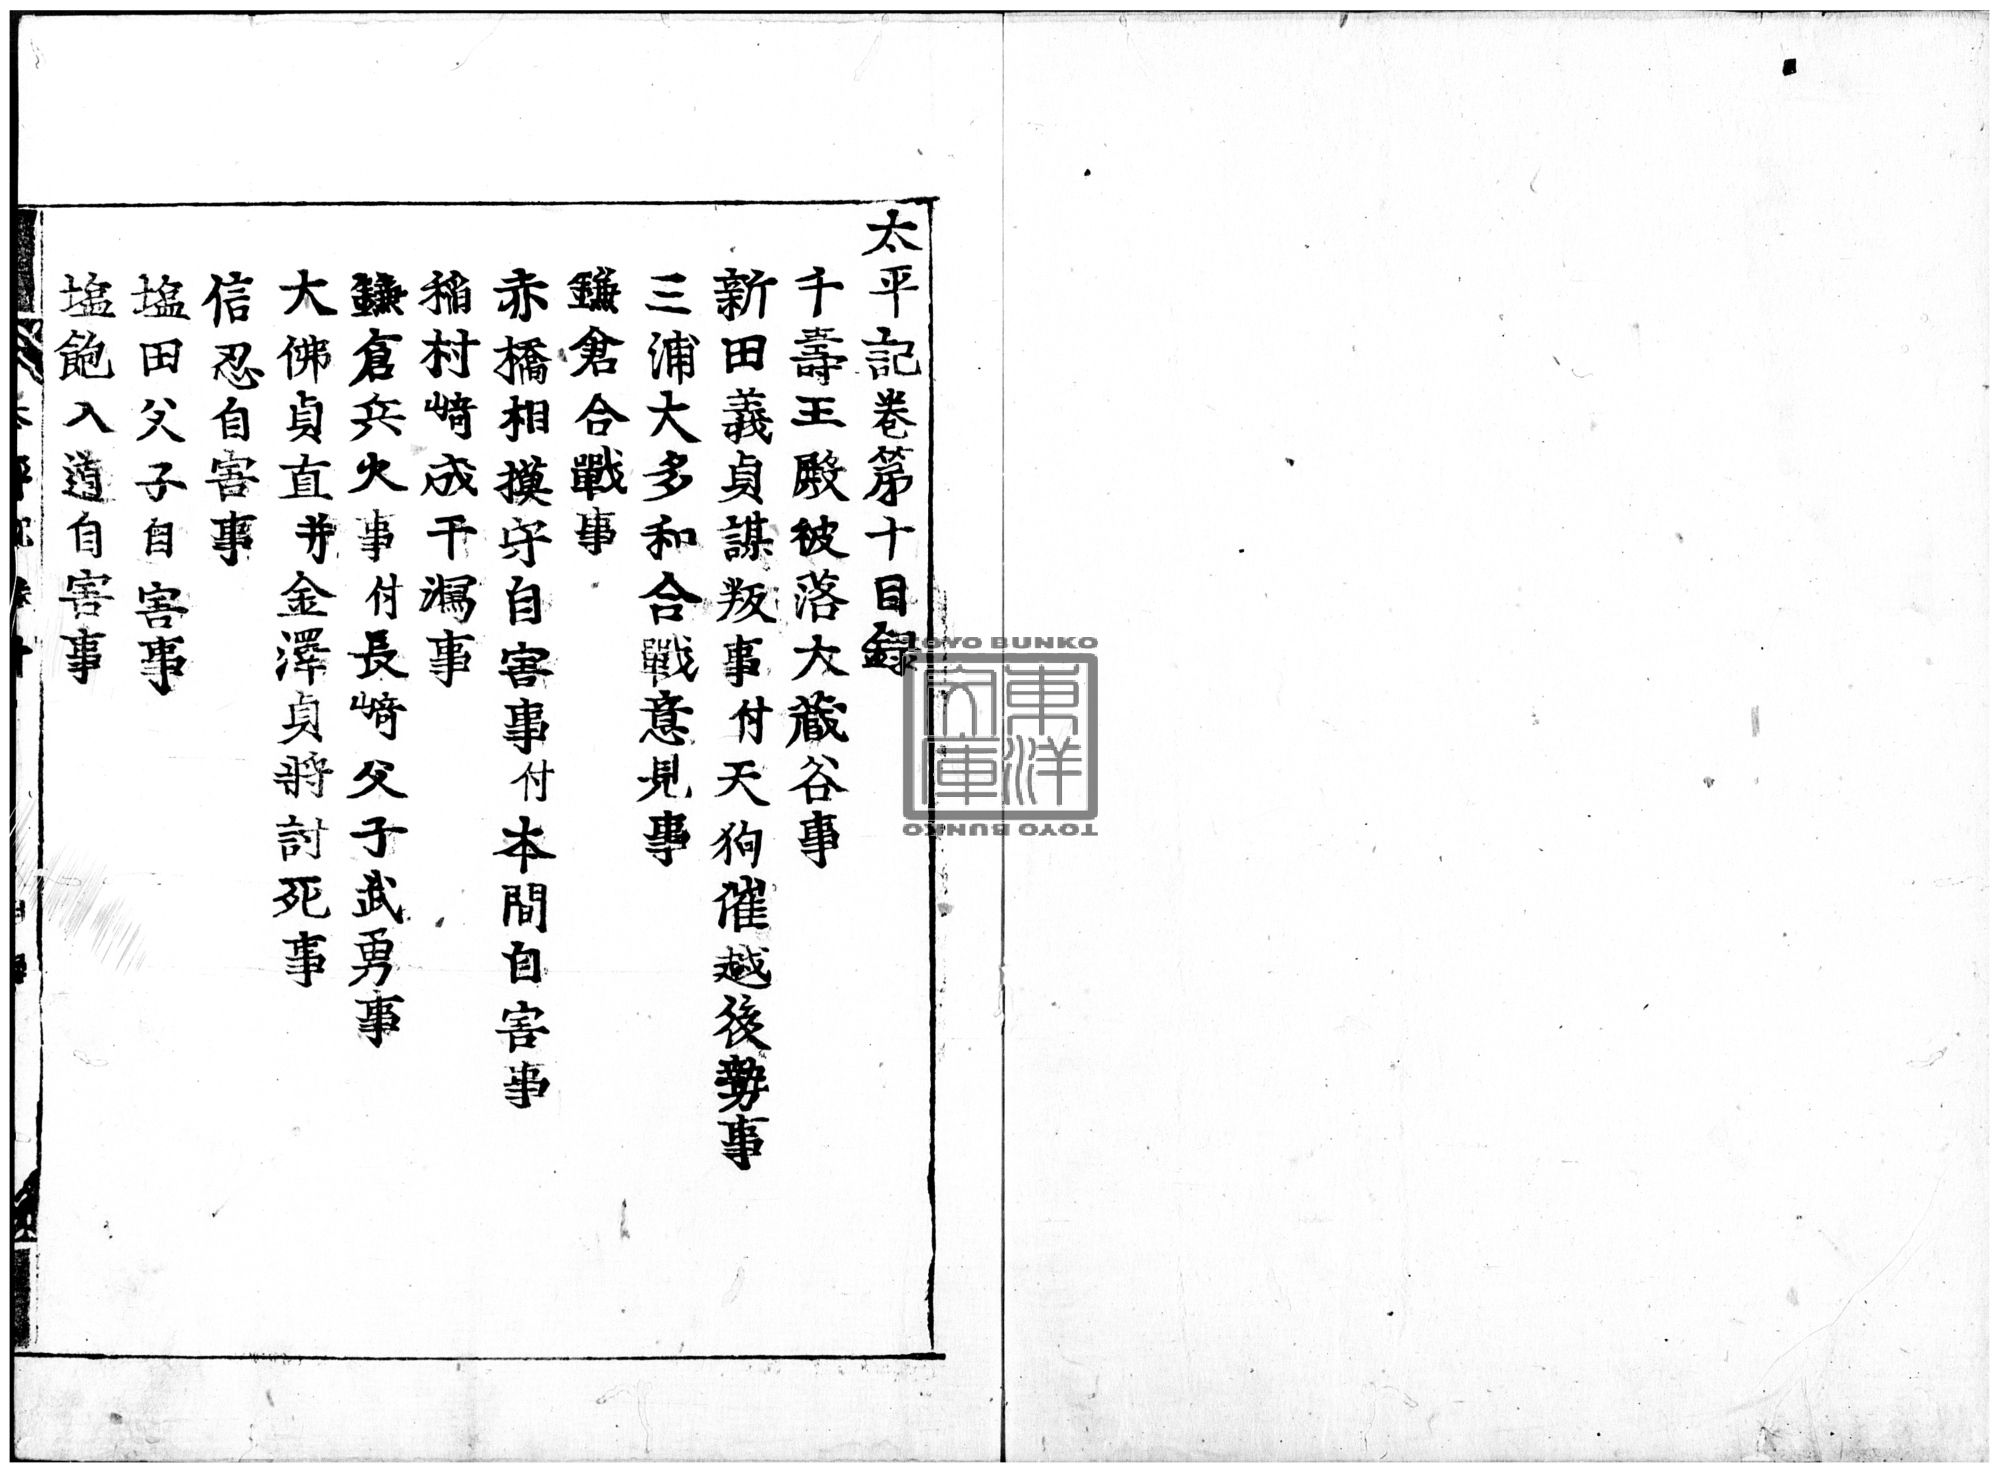 太平記卷第十目録
千壽王殿彼落大藏谷事
新田義貞謀叛事付天狗催越後勢事
三浦大多和合戰意見事
鎌倉合戰事
赤橋相摸守自害事付本間自害事
稲村﨑成干潟事
鎌倉兵火事付長﨑父子武勇事
大佛貞直并金澤貞將討死事
信忍自害事
塩田父子自害事
塩飽入道自害事
TOYO BUNKO
東洋
文庫
TOYO BUNKO